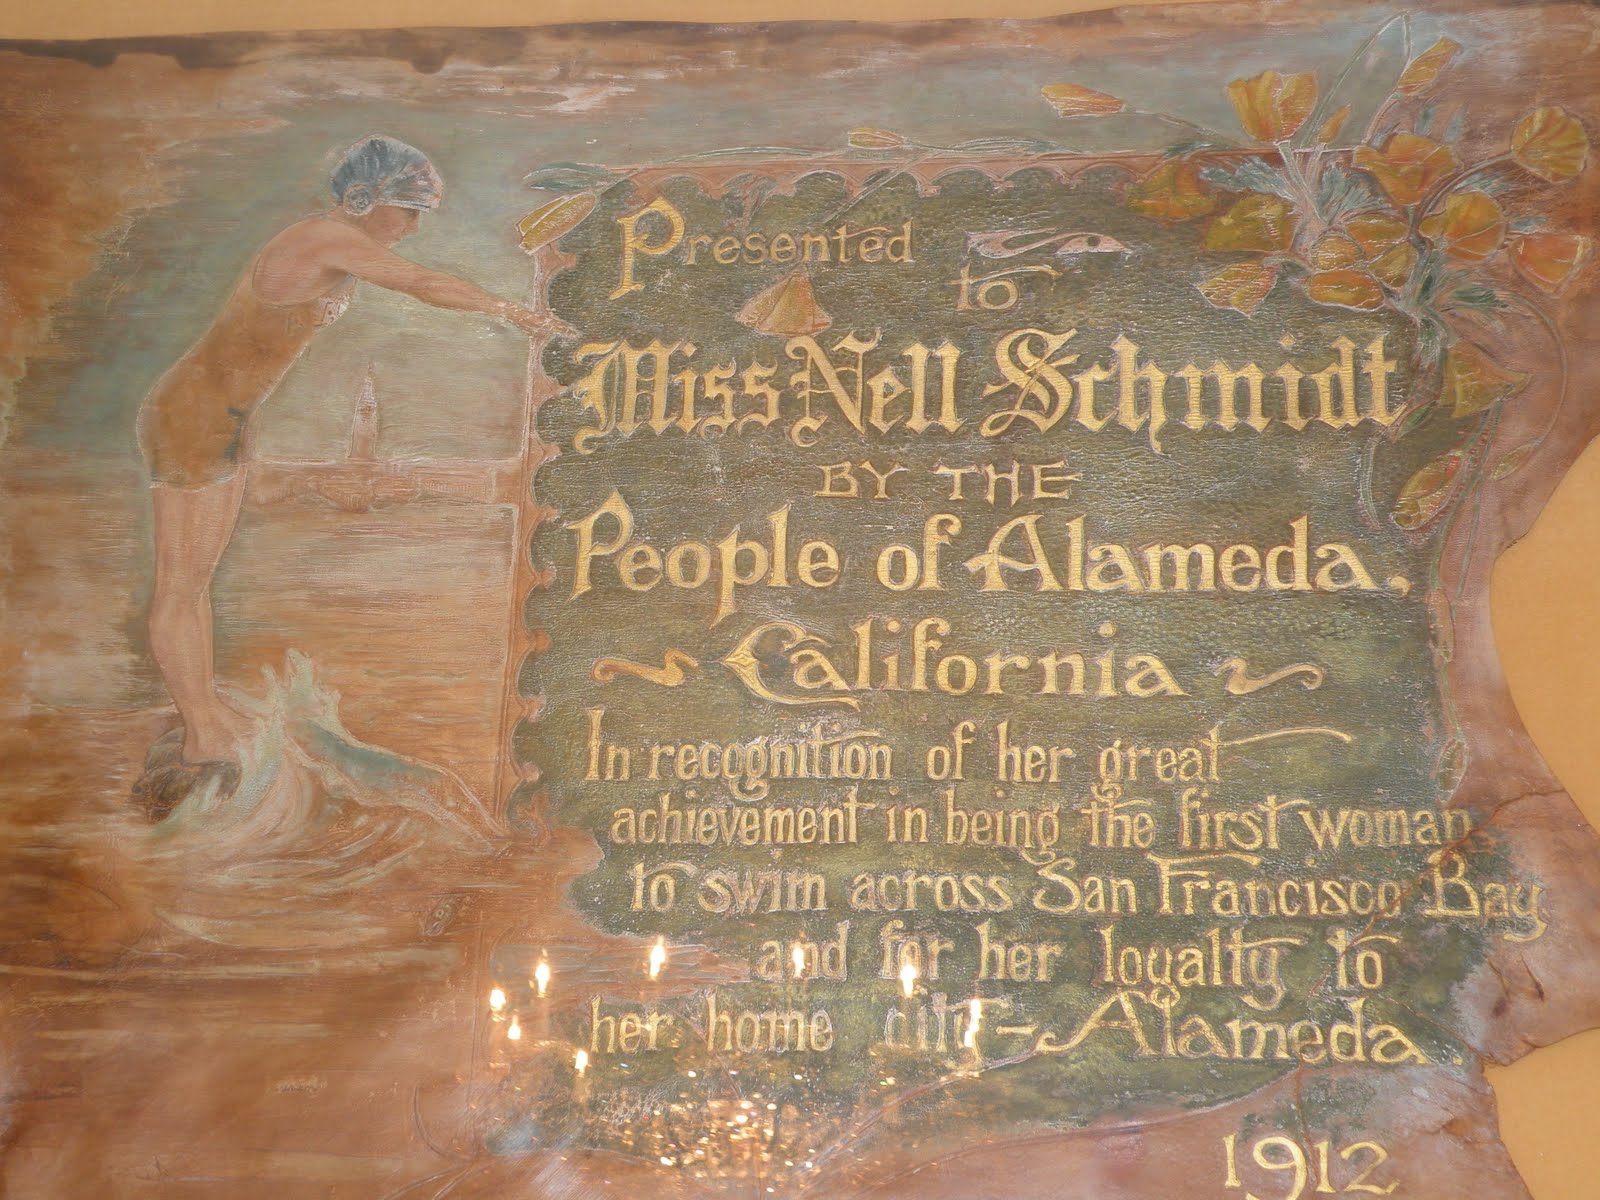 Presented
to
Miss Nell Schmidt
BY THE
People of Alameda,
California
In recognition of her great
achievement in being the first woman
to swim across San Francisco Bay
and for her loyalty to
her home city-Alameda.
1912